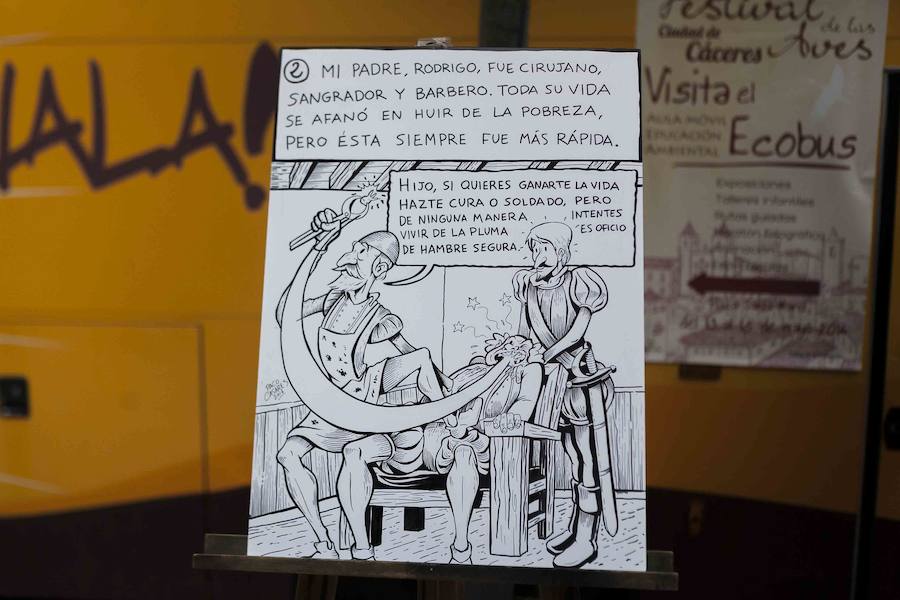 ② MI PADRE, RODRIGO, FUE CIRUJANO,
SANGRADOR Y BARBERO. TODA SU VIDA
SE AFANÓ EN HUIR DE LA POBREZA,
PERO ÉSTA SIEMPRE FUE MÁS RÁPIDA.
HIJO, SI QUIERES GANARTE LA VIDA
HAZTE CURA O SOLDADO, PERO
DE NINGUNA MANERA INTENTES
VIVIR DE LA PLUMA ´ES OFICIO
DE HAMBRE SEGURA.
ALA!
Festival
de las
Ciudad de
Cáceres Aves
Visita el
AULA MÓVIL
EDUCACIÓN
AMBIENTAL
Ecobus
Exposiciones
Talleres infantiles
Rutas guiadas